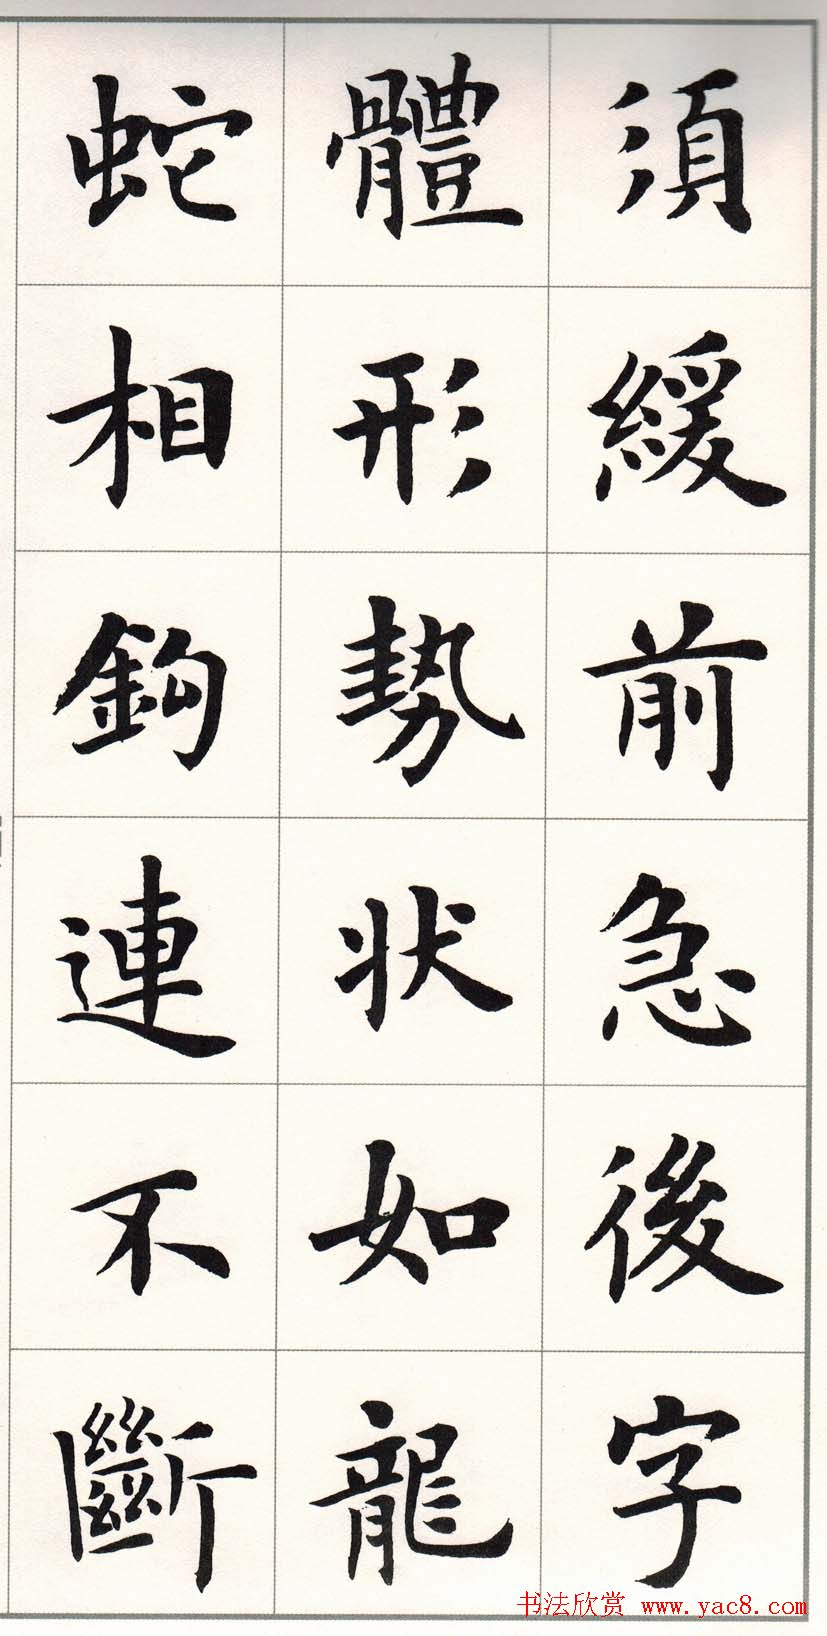 須緩前急後字
體形勢狀如龍
蛇相鉤連不斷
书法欣赏 www.yac8.com